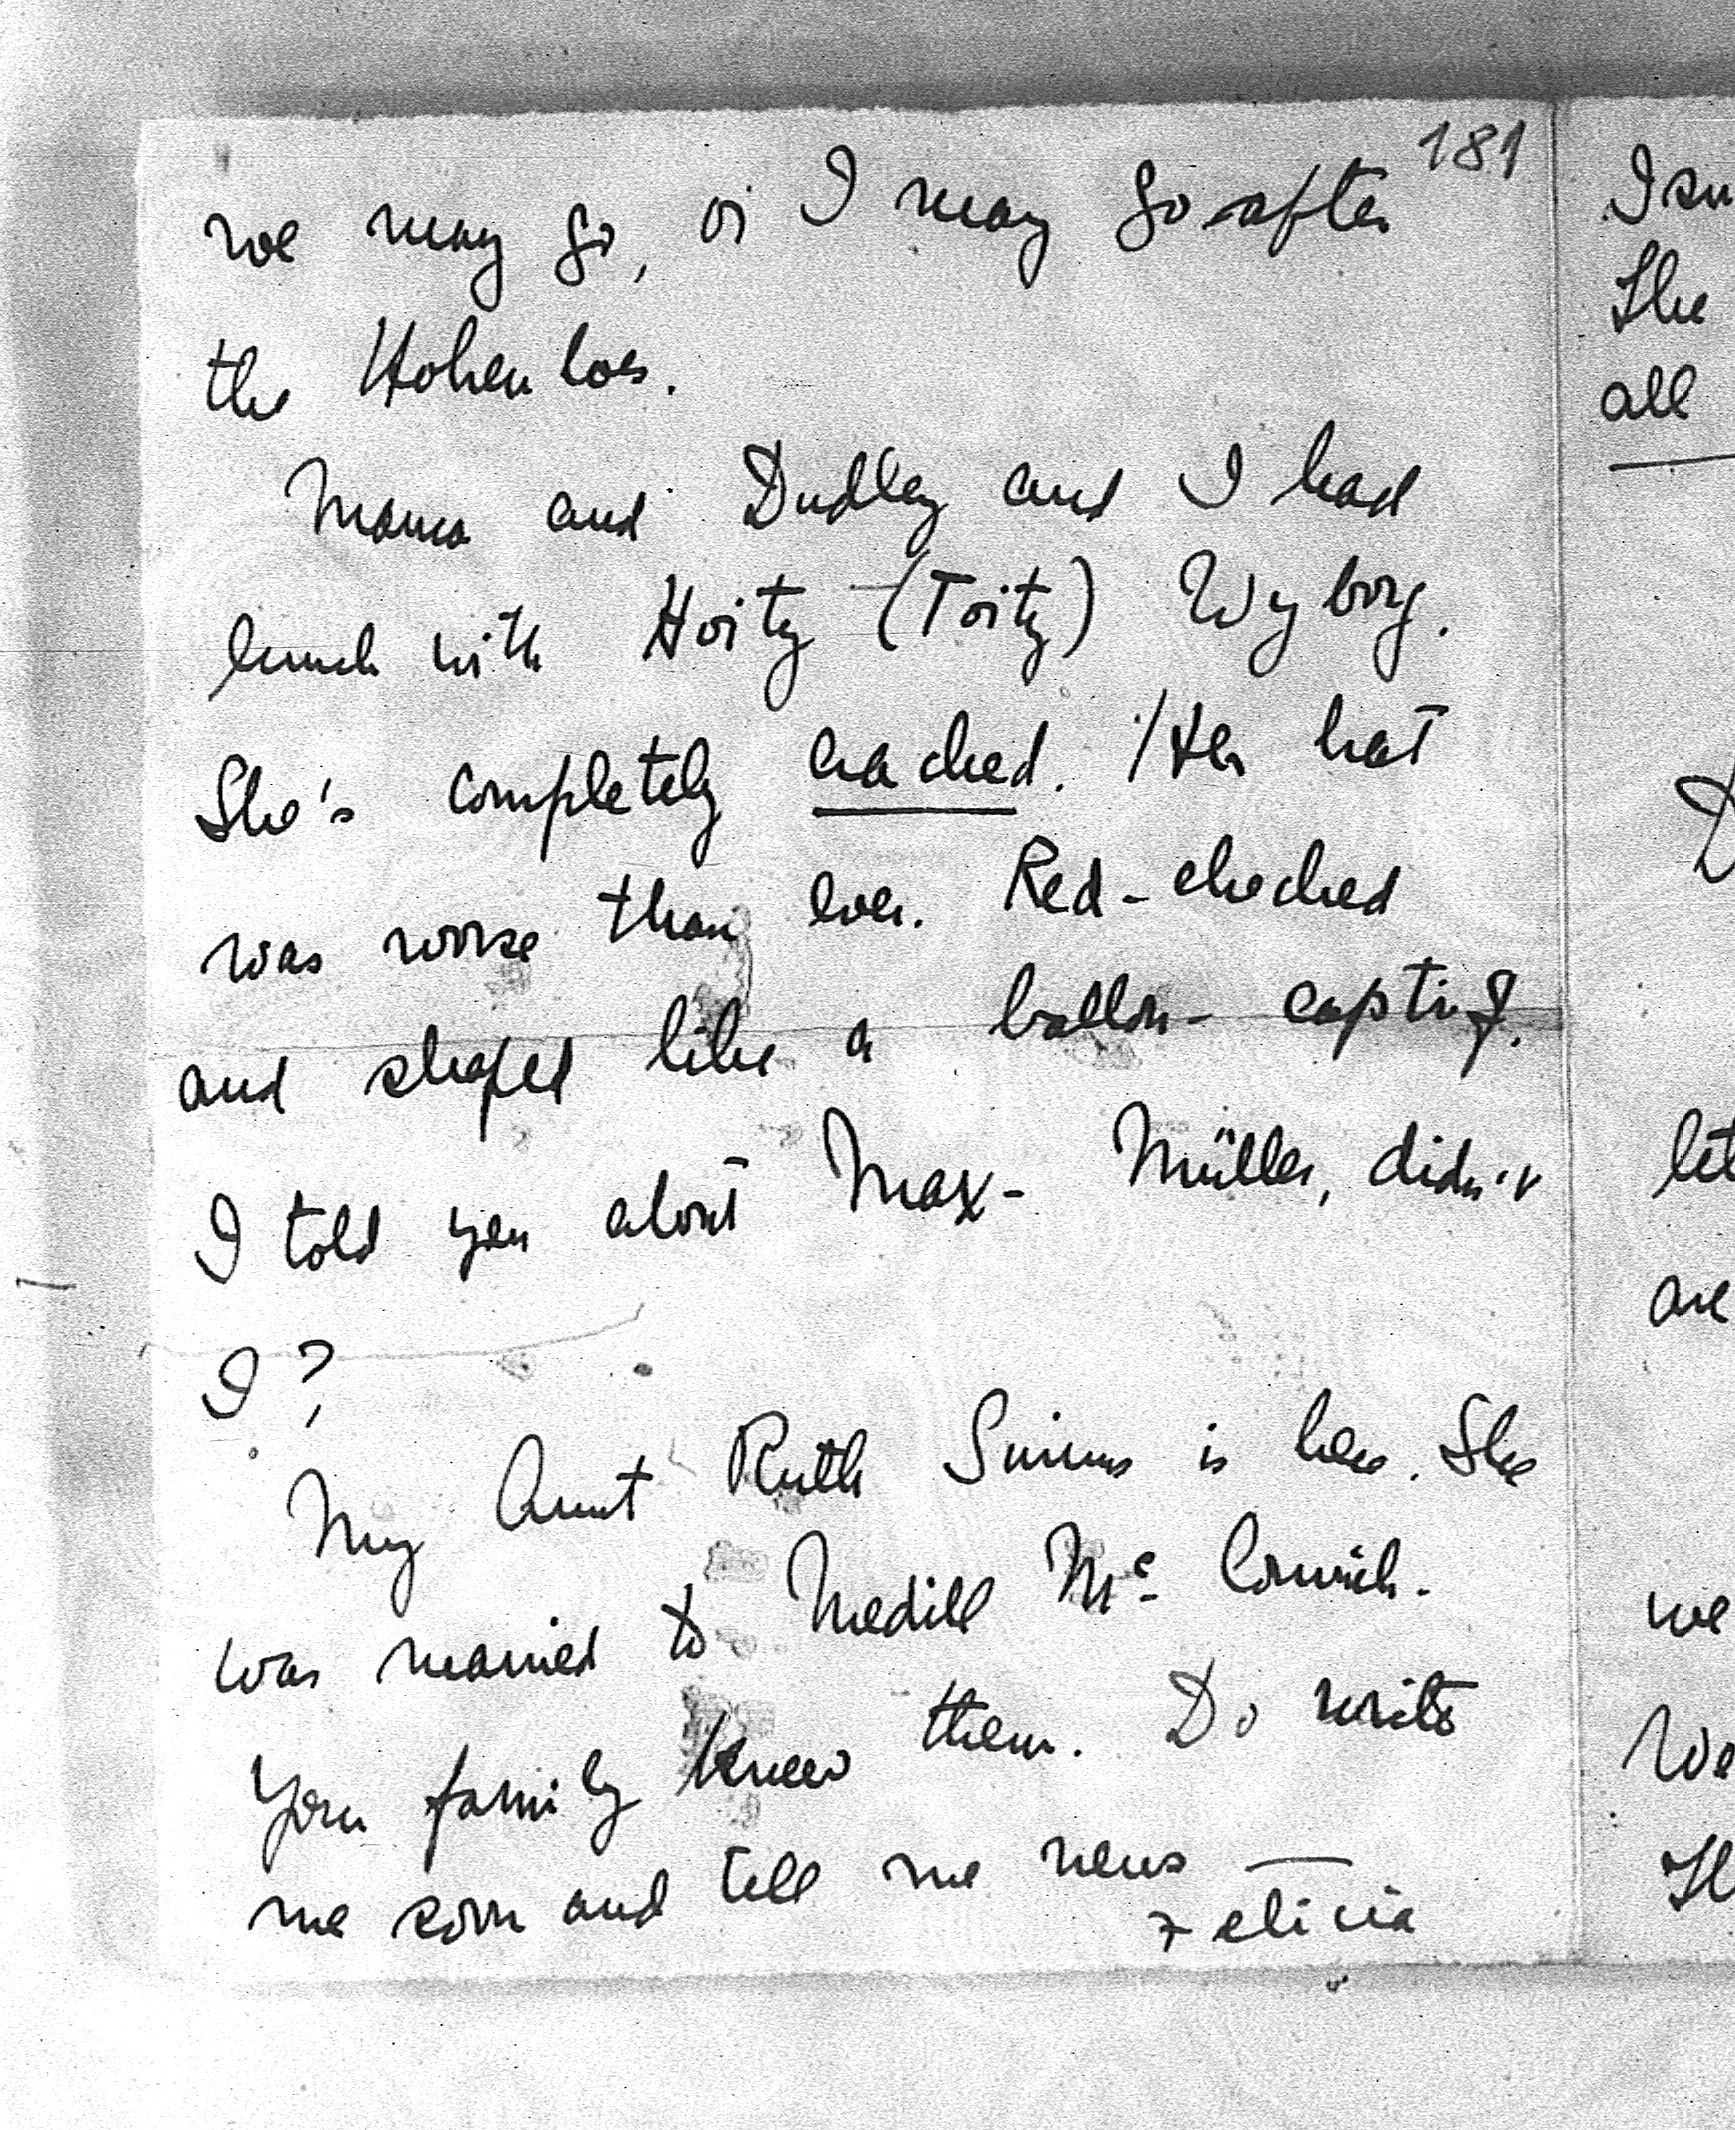 181
we may go, or I may go after
the Hohenloes.
Mama and Dudley and I had
lunch with Hoity (Toity) Wyborg.
She's completely cracked. Her hat
was worse than ever. Red-checked
and shaped like a ballon-captif.
I told you about Max-Müller, didn't
I?
My Aunt Ruth Simms is here. She
was married to Medill Mc Cormick.
Your family knew them. Do write
me soon and tell me news —
Felicia
She
all
let
are
we